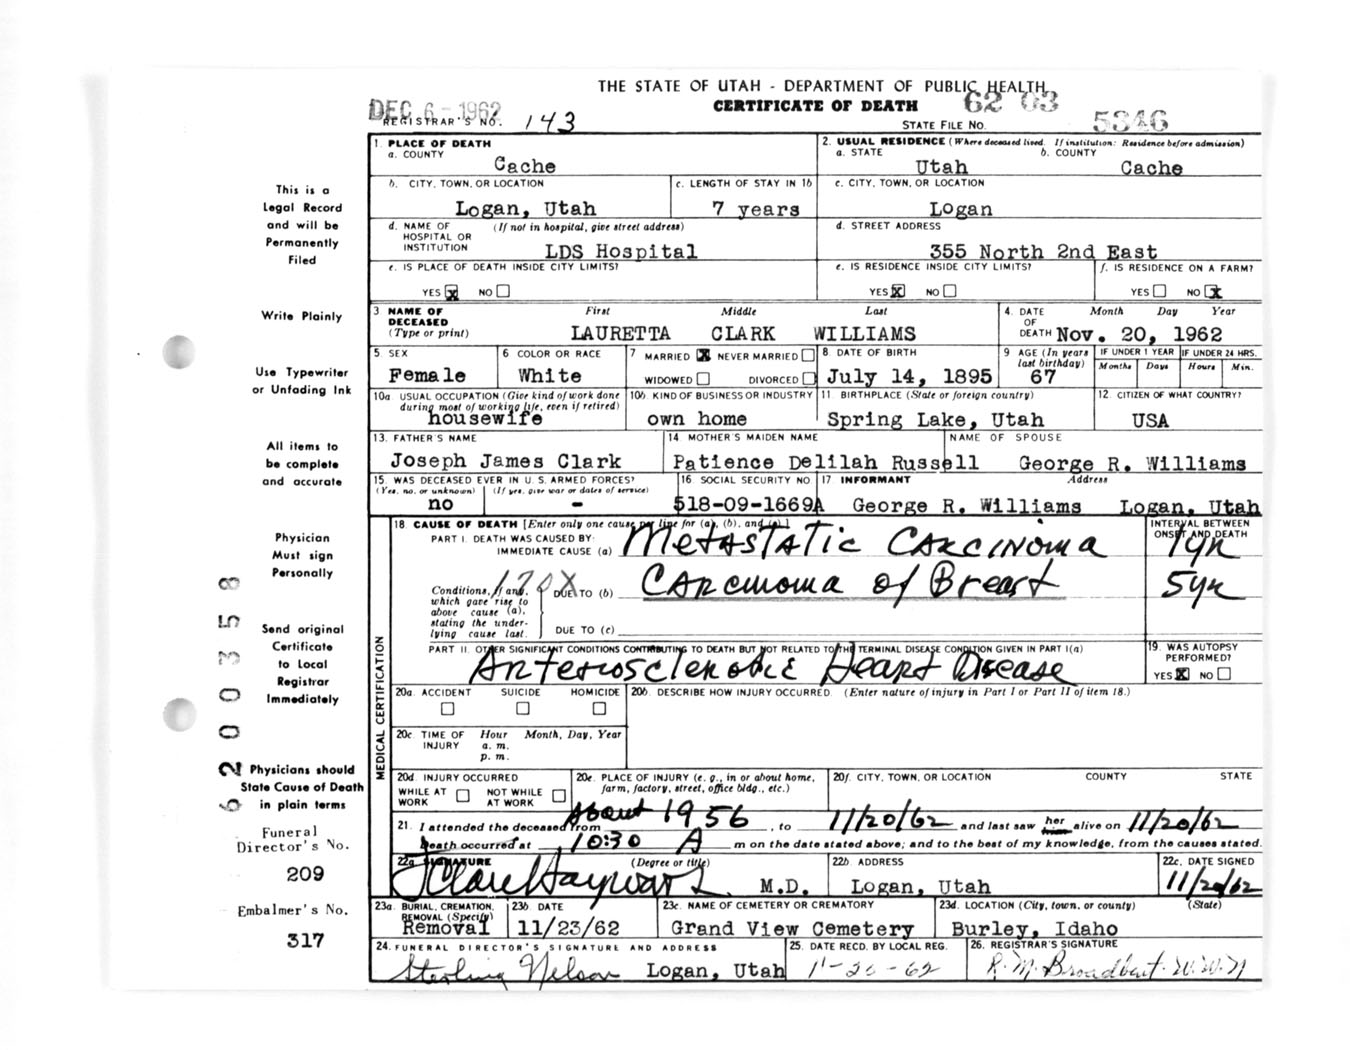 THE STATE OF UTAH - DEPARTMENT OF PUBLIC HEALTH
DEC 6 - 1962 CERTIFICATE OF DEATH 62 03
REGISTRAR'S NO. 143 STATE FILE NO. 5346
1. PLACE OF DEATH
a. COUNTY
Cache
2. USUAL RESIDENCE (Where deceased lived. If institution: Residence before admission)
a. STATE b. COUNTY
Utah Cache
b. CITY, TOWN, OR LOCATION
Logan, Utah
c. LENGTH OF STAY IN 1b
7 years
c. CITY, TOWN, OR LOCATION
Logan
d. NAME OF HOSPITAL OR INSTITUTION (If not in hospital, give street address)
LDS Hospital
d. STREET ADDRESS
355 North 2nd East
e. IS PLACE OF DEATH INSIDE CITY LIMITS?
YES X NO
e. IS RESIDENCE INSIDE CITY LIMITS?
YES X NO
f. IS RESIDENCE ON A FARM?
YES NO X
3. NAME OF DECEASED (Type or print)
First Middle Last
LAURETTA CLARK WILLIAMS
4. DATE OF DEATH
Month Day Year
Nov. 20, 1962
5 SEX
Female
6 COLOR OR RACE
White
7 MARRIED X NEVER MARRIED
WIDOWED DIVORCED
8 DATE OF BIRTH
July 14, 1895
9 AGE (In years last birthday)
67
IF UNDER 1 YEAR
Months Days
IF UNDER 24 HRS.
Hours Min.
10a. USUAL OCCUPATION (Give kind of work done during most of working life, even if retired)
housewife
10b. KIND OF BUSINESS OR INDUSTRY
own home
11. BIRTHPLACE (State or foreign country)
Spring Lake, Utah
12. CITIZEN OF WHAT COUNTRY?
USA
13. FATHER'S NAME
Joseph James Clark
14. MOTHER'S MAIDEN NAME
Patience Delilah Russell
NAME OF SPOUSE
George R. Williams
15. WAS DECEASED EVER IN U. S. ARMED FORCES?
(Yes, no, or unknown) (If yes, give war or dates of service)
no -
16. SOCIAL SECURITY NO.
518-09-1669A
17 INFORMANT Address
George R. Williams Logan, Utah
18. CAUSE OF DEATH [Enter only one cause per line for (a), (b), and (c).]
INTERVAL BETWEEN ONSET AND DEATH
PART I. DEATH WAS CAUSED BY:
IMMEDIATE CAUSE (a) Metastatic Carcinoma 1 yr
Conditions, if any, which gave rise to above cause (a), stating the underlying cause last.
170X
DUE TO (b) Carcinoma of Breast 5 yr
DUE TO (c)
PART II. OTHER SIGNIFICANT CONDITIONS CONTRIBUTING TO DEATH BUT NOT RELATED TO THE TERMINAL DISEASE CONDITION GIVEN IN PART I(a)
Arteriosclerotic Heart Disease
19. WAS AUTOPSY PERFORMED?
YES X NO
20a. ACCIDENT SUICIDE HOMICIDE
20b. DESCRIBE HOW INJURY OCCURRED. (Enter nature of injury in Part I or Part II of item 18.)
20c. TIME OF INJURY
Hour Month, Day, Year
a. m.
p. m.
20d. INJURY OCCURRED
WHILE AT WORK NOT WHILE AT WORK
20e. PLACE OF INJURY (e. g., in or about home, farm, factory, street, office bldg., etc.)
20f. CITY, TOWN, OR LOCATION COUNTY STATE
21. I attended the deceased from About 1956, to 11/20/62 and last saw her him alive on 11/20/62
Death occurred at 10:30 A m on the date stated above; and to the best of my knowledge, from the causes stated.
22a. SIGNATURE (Degree or title)
J Clare Hayward M.D.
22b. ADDRESS
Logan, Utah
22c. DATE SIGNED
11/20/62
23a. BURIAL, CREMATION, REMOVAL (Specify)
Removal
23b. DATE
11/23/62
23c. NAME OF CEMETERY OR CREMATORY
Grand View Cemetery
23d. LOCATION (City, town, or county) (State)
Burley, Idaho
24. FUNERAL DIRECTOR'S SIGNATURE AND ADDRESS
Sterling Nelson Logan, Utah
25. DATE RECD. BY LOCAL REG.
11-20-62
26. REGISTRAR'S SIGNATURE
R. M. Broadbent
MEDICAL CERTIFICATION
This is a
Legal Record
and will be
Permanently
Filed
Write Plainly
Use Typewriter
or Unfading Ink
All items to
be complete
and accurate
Physician
Must sign
Personally
Send original
Certificate
to Local
Registrar
Immediately
Physicians should
State Cause of Death
in plain terms
Funeral
Director's No.
209
Embalmer's No.
317